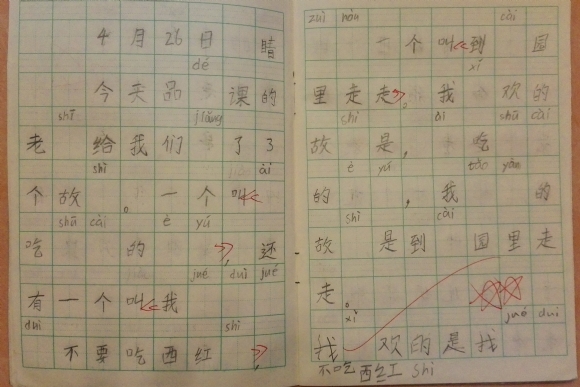 4月26日 晴
dé
今天品 课的
shī jiǎng
老 给我们 了了
shì ài
个故 。一个叫《
shū cài è yú
吃 的 》,还
jué duì jué
有一个叫《我
duì shì
不要吃西红 》,
zuì hòu cài
一个叫《到 园
xǐ
里走走》。我 欢的
shì ài shū cài
故 是, 吃
è yú tǎo yàn
的 ,我 的
shì cài
故 是到 园里走
走。
xǐ jué duì
我 欢的是我
不吃西红 shì